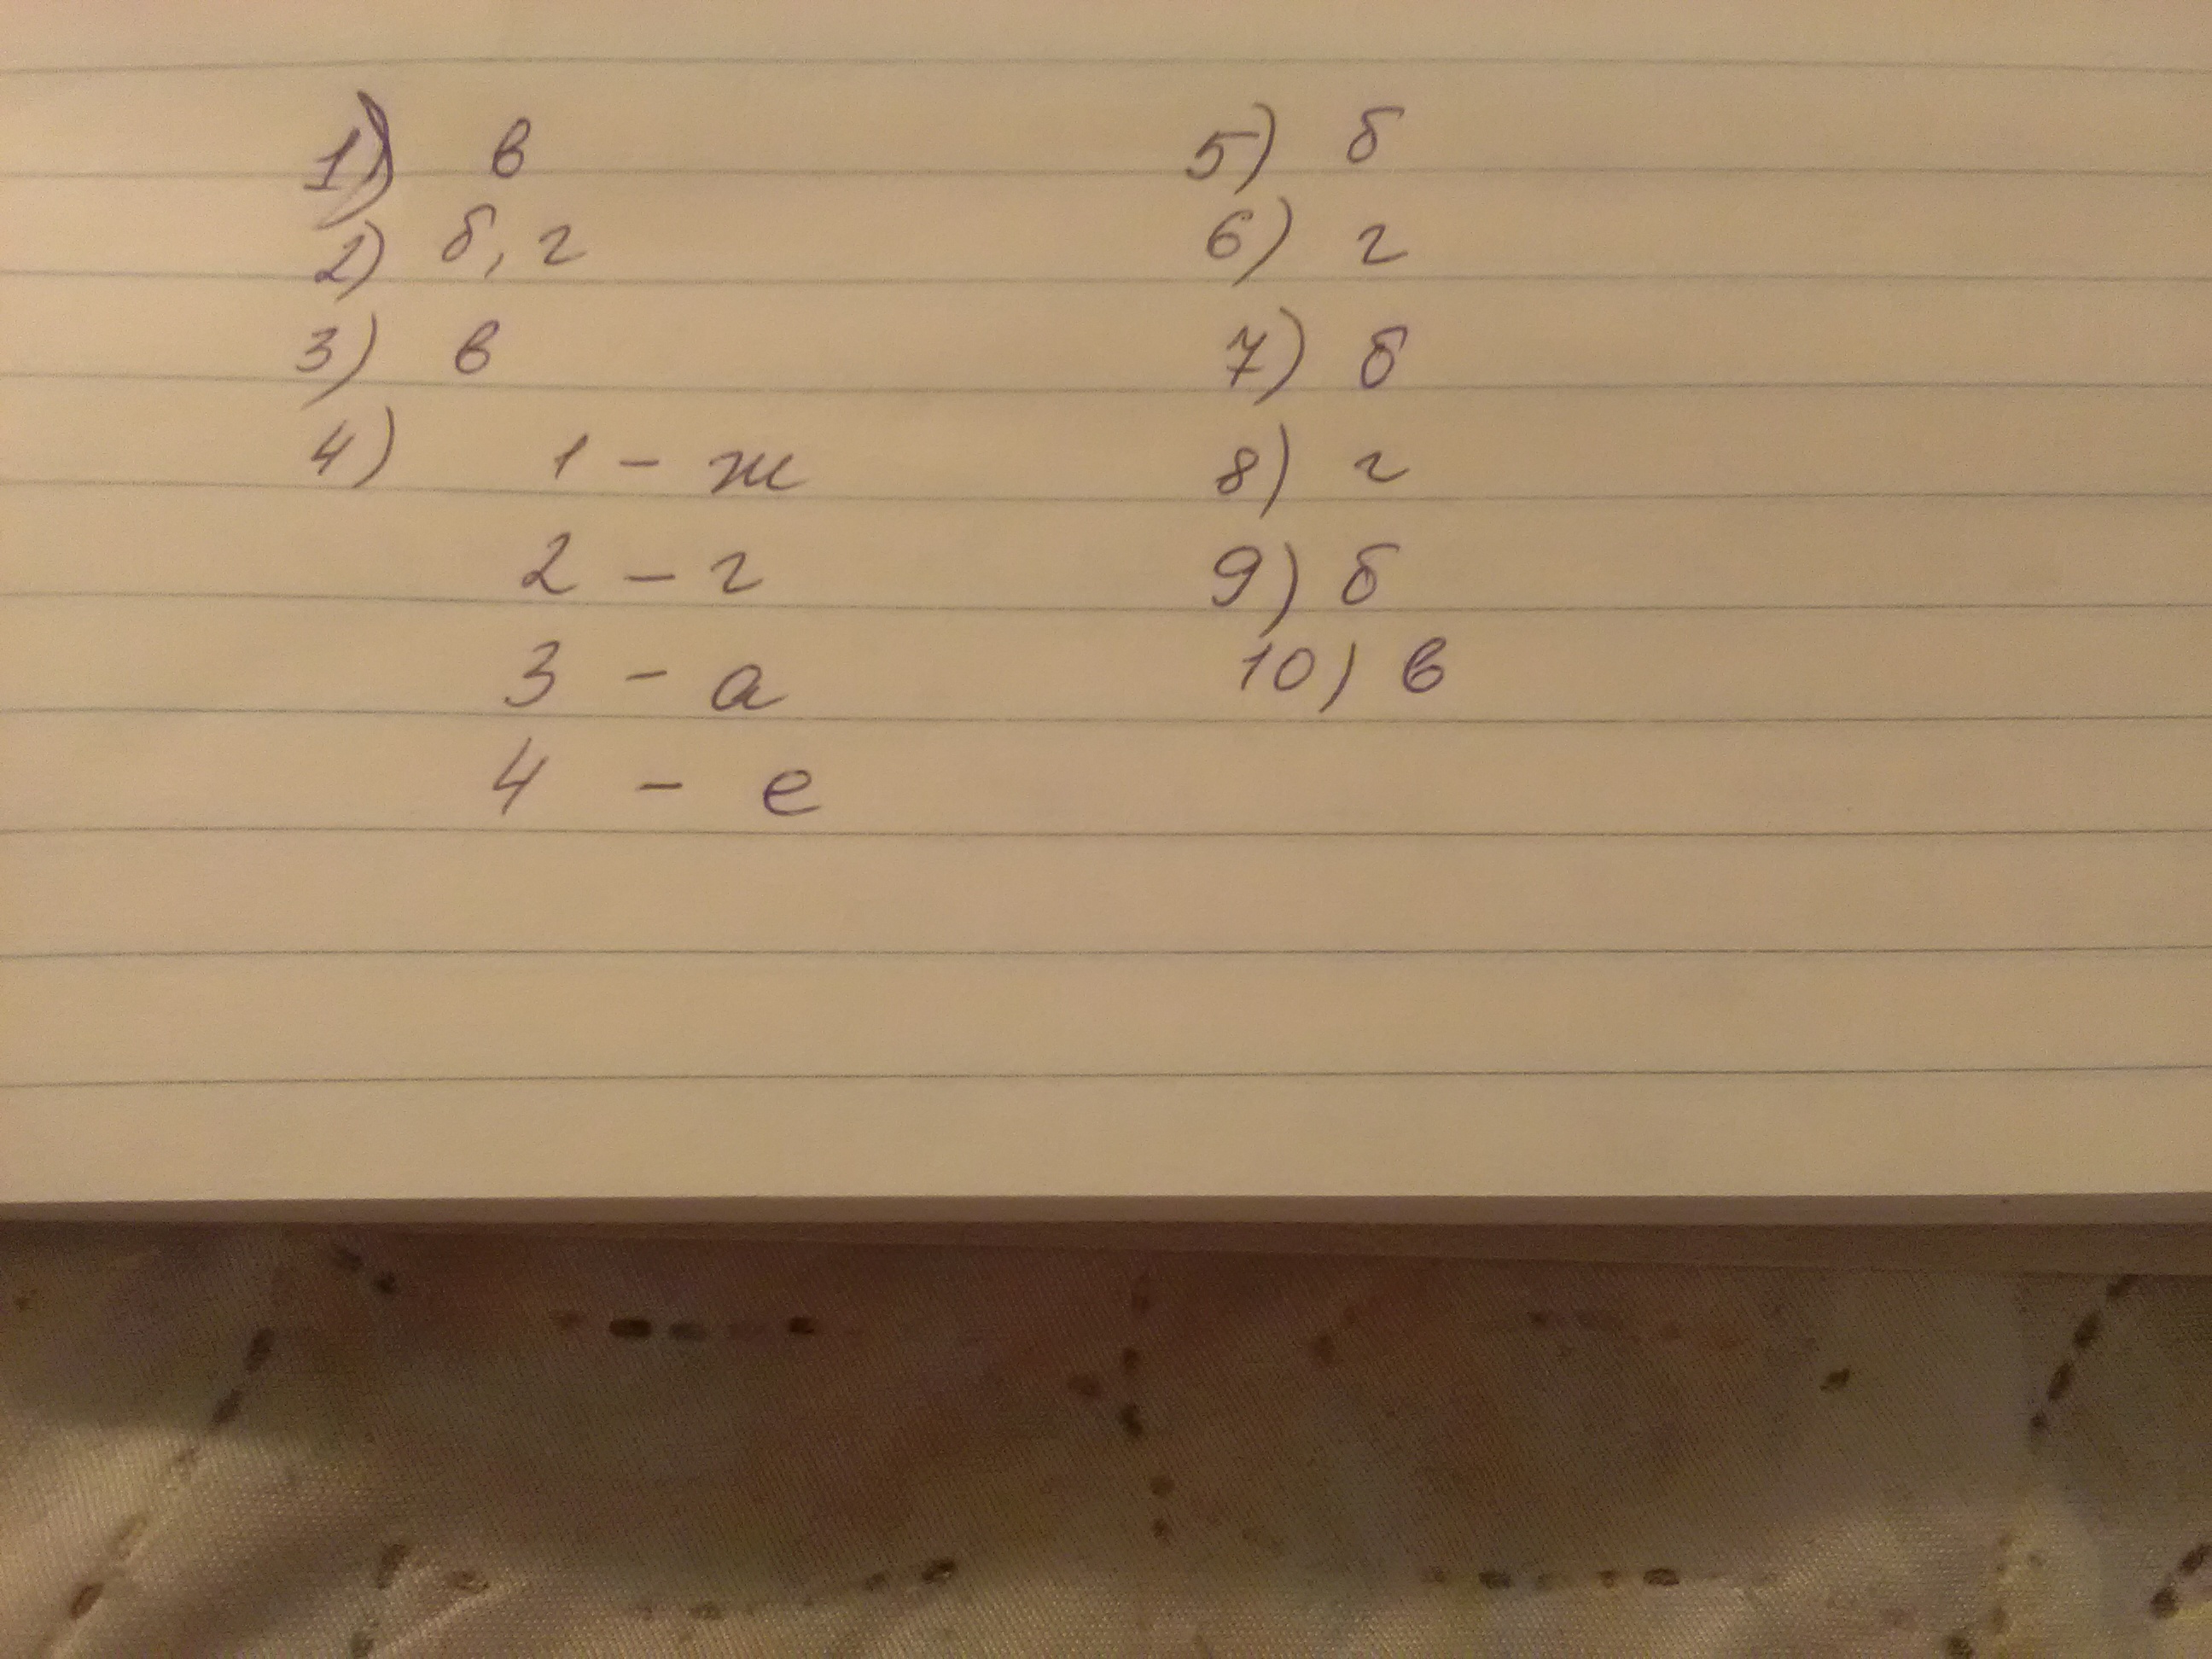 1) в
2) б, г
3) в
4) 1 - ж
2 - г
3 - а
4 - е
5) б
6) г
7) б
8) г
9) б
10) в